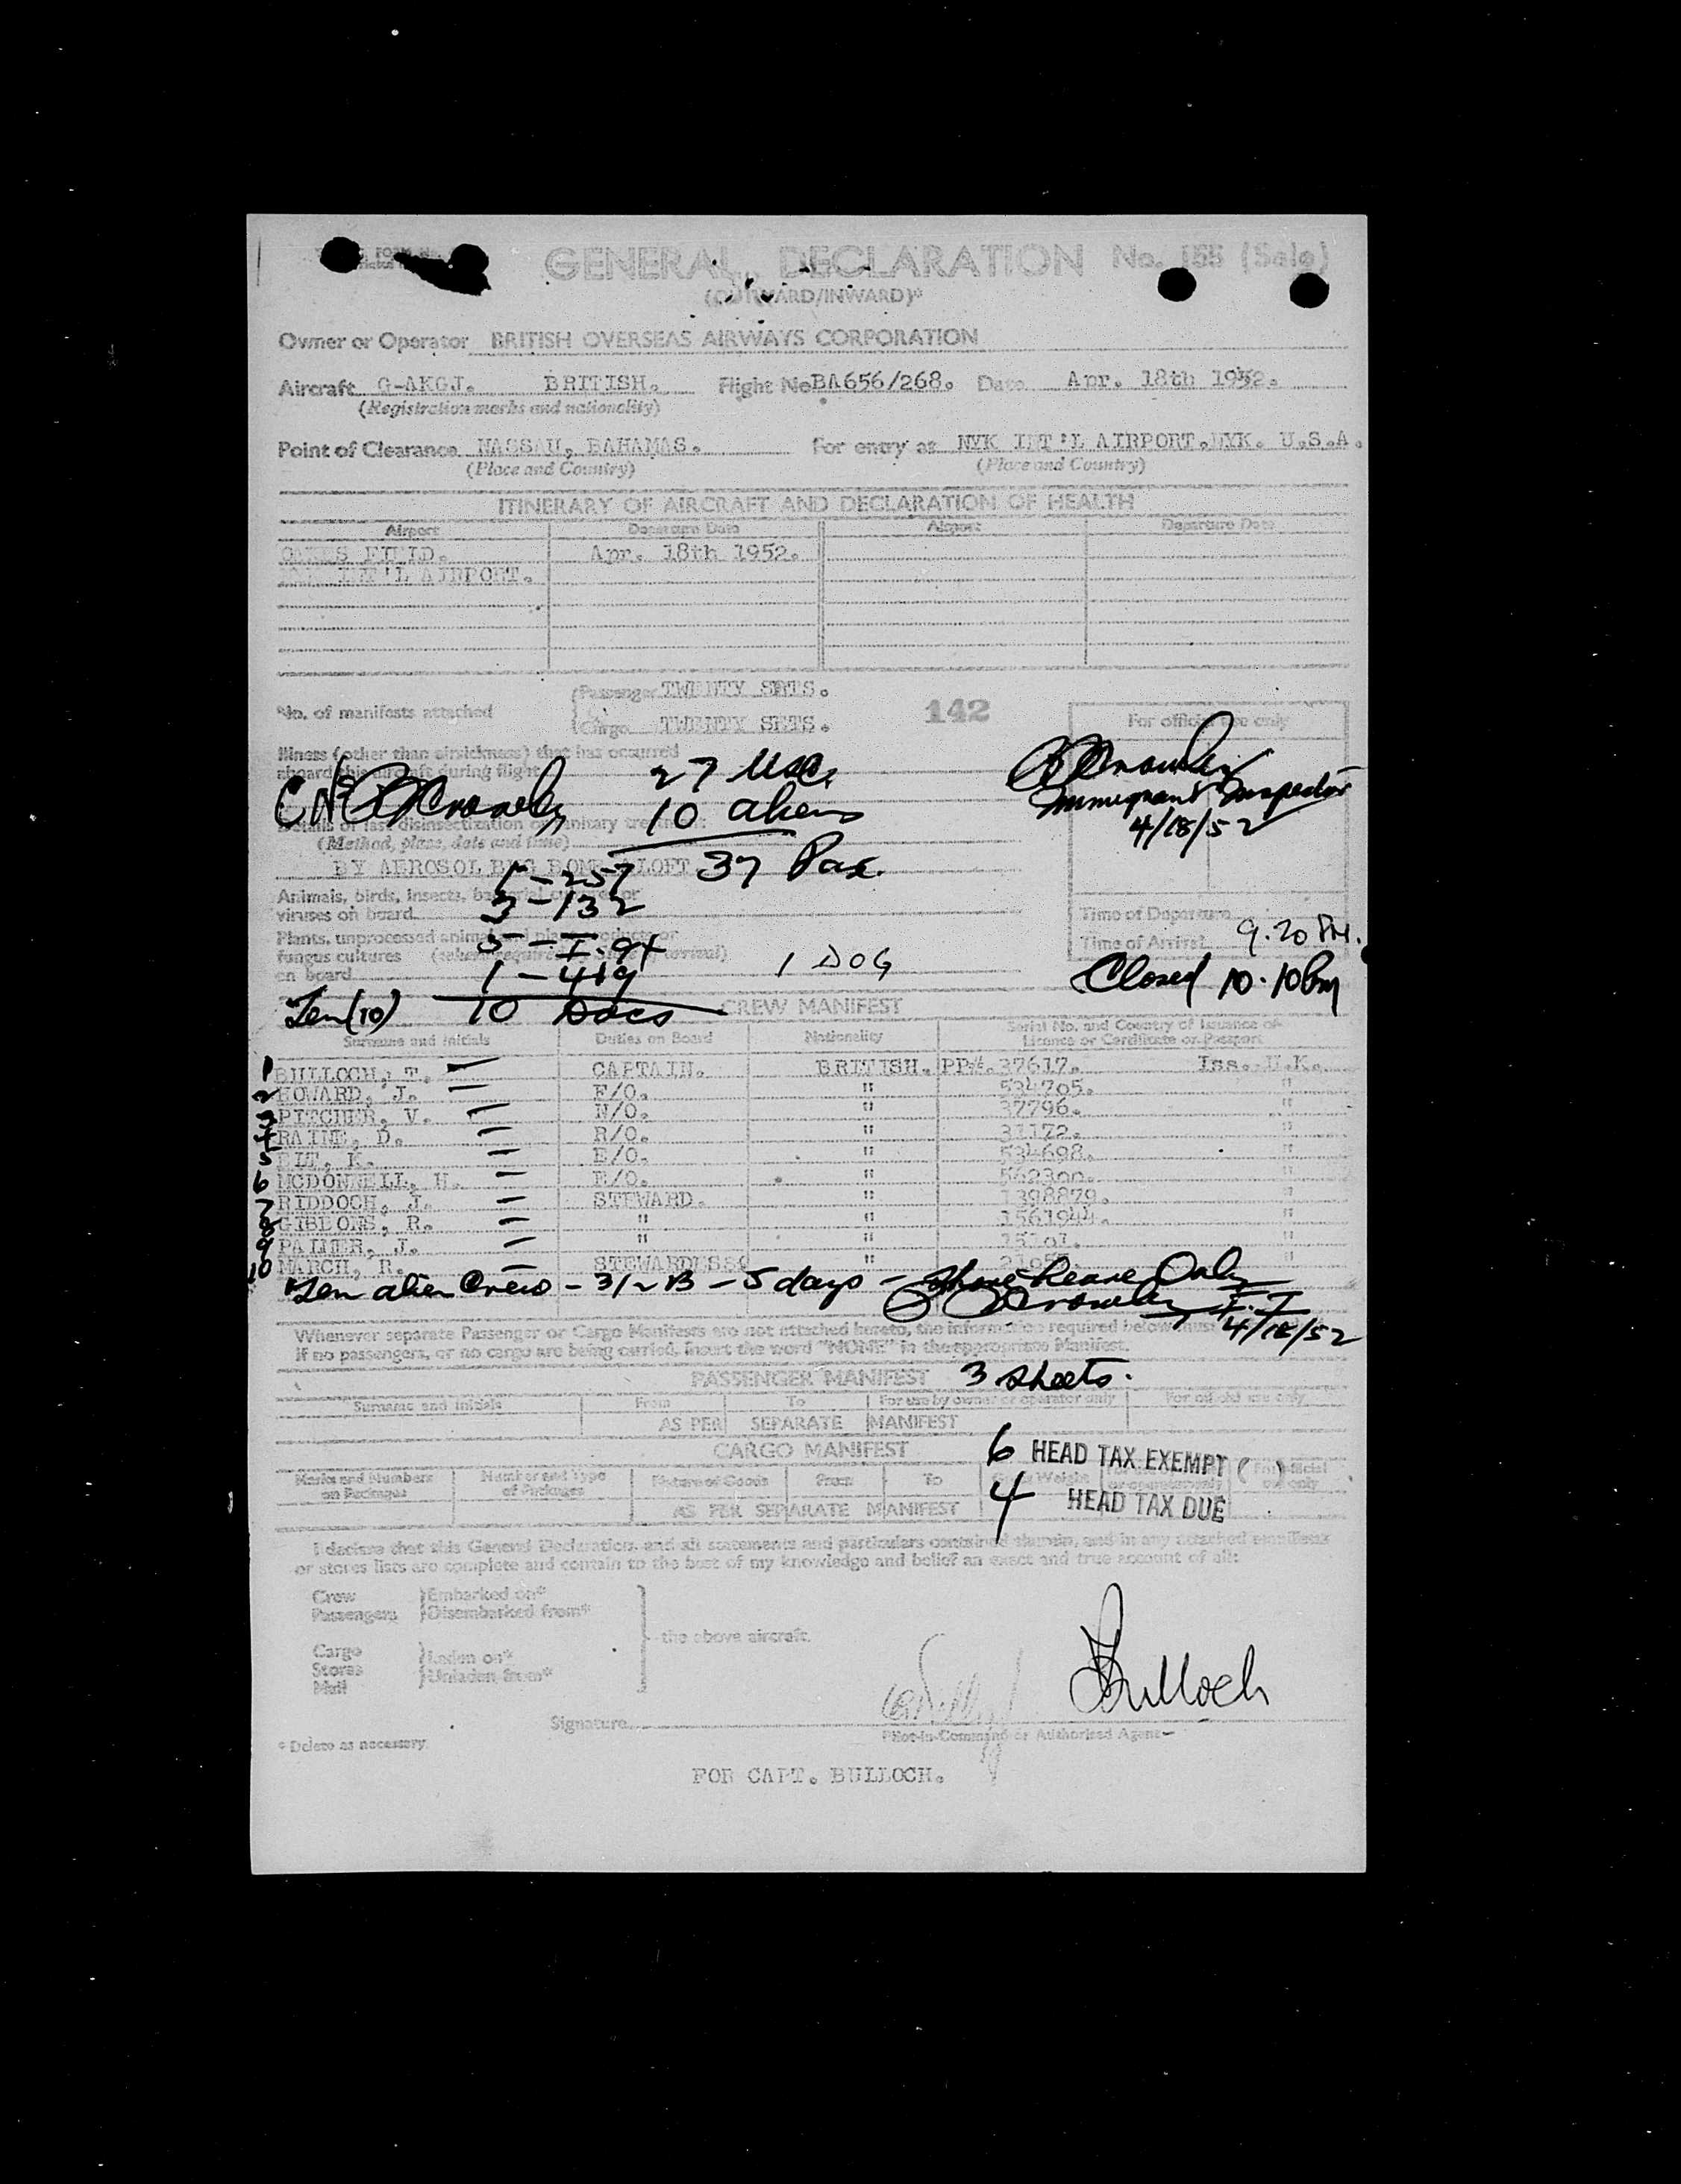 GENERAL DECLARATION No. 155 (Sale)
(OUTWARD/INWARD)*
Owner or Operator BRITISH OVERSEAS AIRWAYS CORPORATION
Aircraft G-AKGJ. BRITISH. Flight No BA656/268. Date Apr. 18th 1952.
(Registration marks and nationality)
Point of Clearance NASSAU, BAHAMAS. For entry at NYK INT'L AIRPORT. NYK. U.S.A.
(Place and Country) (Place and Country)
ITINERARY OF AIRCRAFT AND DECLARATION OF HEALTH
Airport Departure Date Airport Departure Date
OAKES FIELD. Apr. 18th 1952.
INT'L AIRPORT.
Passenger TWENTY SETS.
No. of manifests attached 142
Cargo TWENTY SETS.
For official use only
Illness (other than airsickness) that has occurred
aboard this aircraft during flight
27 USC.
10 aliens
37 Pax.
Immigrant Inspector
4/18/52
Details of last disinsectization or sanitary treatment
(Method, place, date and time)
BY AEROSOL BUG BOMB ALOFT
1-257
Animals, birds, insects, bacterial cultures or
viruses on board
3-132
Time of Departure
Plants, unprocessed animal and plant products or
fungus cultures
on board
5-I-94
1 DOG
Time of Arrival 9.20 PM.
1-419
Closed 10.10 Pm
Ten (10) 10 Docs
CREW MANIFEST
Surname and Initials Duties on Board Nationality Serial No. and Country of Issuance of
Licence or Certificate or Passport
1 BULLOCH, T. CAPTAIN. BRITISH. PP#. 37617. Iss. U.K.
2 HOWARD, J. F/O. " 534705. "
3 PITCHER, V. N/O. " 37796. "
4 RAINE, D. R/O. " 31172. "
5 K. E/O. " 534698. "
6 MCDONNELL, H. E/O. " 562300. "
7 RIDDOCH, J. STEWARD. " 1398879. "
8 GIBBONS, R. " " 1561944. "
9 PALMER, J. " " "
10 MARCH, R. STEWARDESS " "
Ten alien Crew - 3/2 B - 5 days - Shore Leave Only
I.I.
4/18/52
Whenever separate Passenger or Cargo Manifests are not attached hereto, the information required below must
If no passengers, or no cargo are being carried, insert the word "NONE" in the appropriate Manifest.
PASSENGER MANIFEST 3 sheets.
Surname and Initials From To For use by owner or operator only For official use only
AS PER SEPARATE MANIFEST
CARGO MANIFEST
6 HEAD TAX EXEMPT ( )
Marks and Numbers
on Packages Number and Type
of Packages Nature of Goods From To Gross Weight
4 HEAD TAX DUE
AS PER SEPARATE MANIFEST
I declare that this General Declaration, and all statements and particulars contained therein, and in any attached manifests
or stores lists are complete and contain to the best of my knowledge and belief an exact and true account of all:
Crew
Passengers
Embarked on*
Disembarked from*
the above aircraft.
Cargo
Stores
Mail
Laden on*
Unladen from*
Bulloch
Signature
Pilot-in-Command or Authorised Agent
* Delete as necessary.
FOR CAPT. BULLOCH.